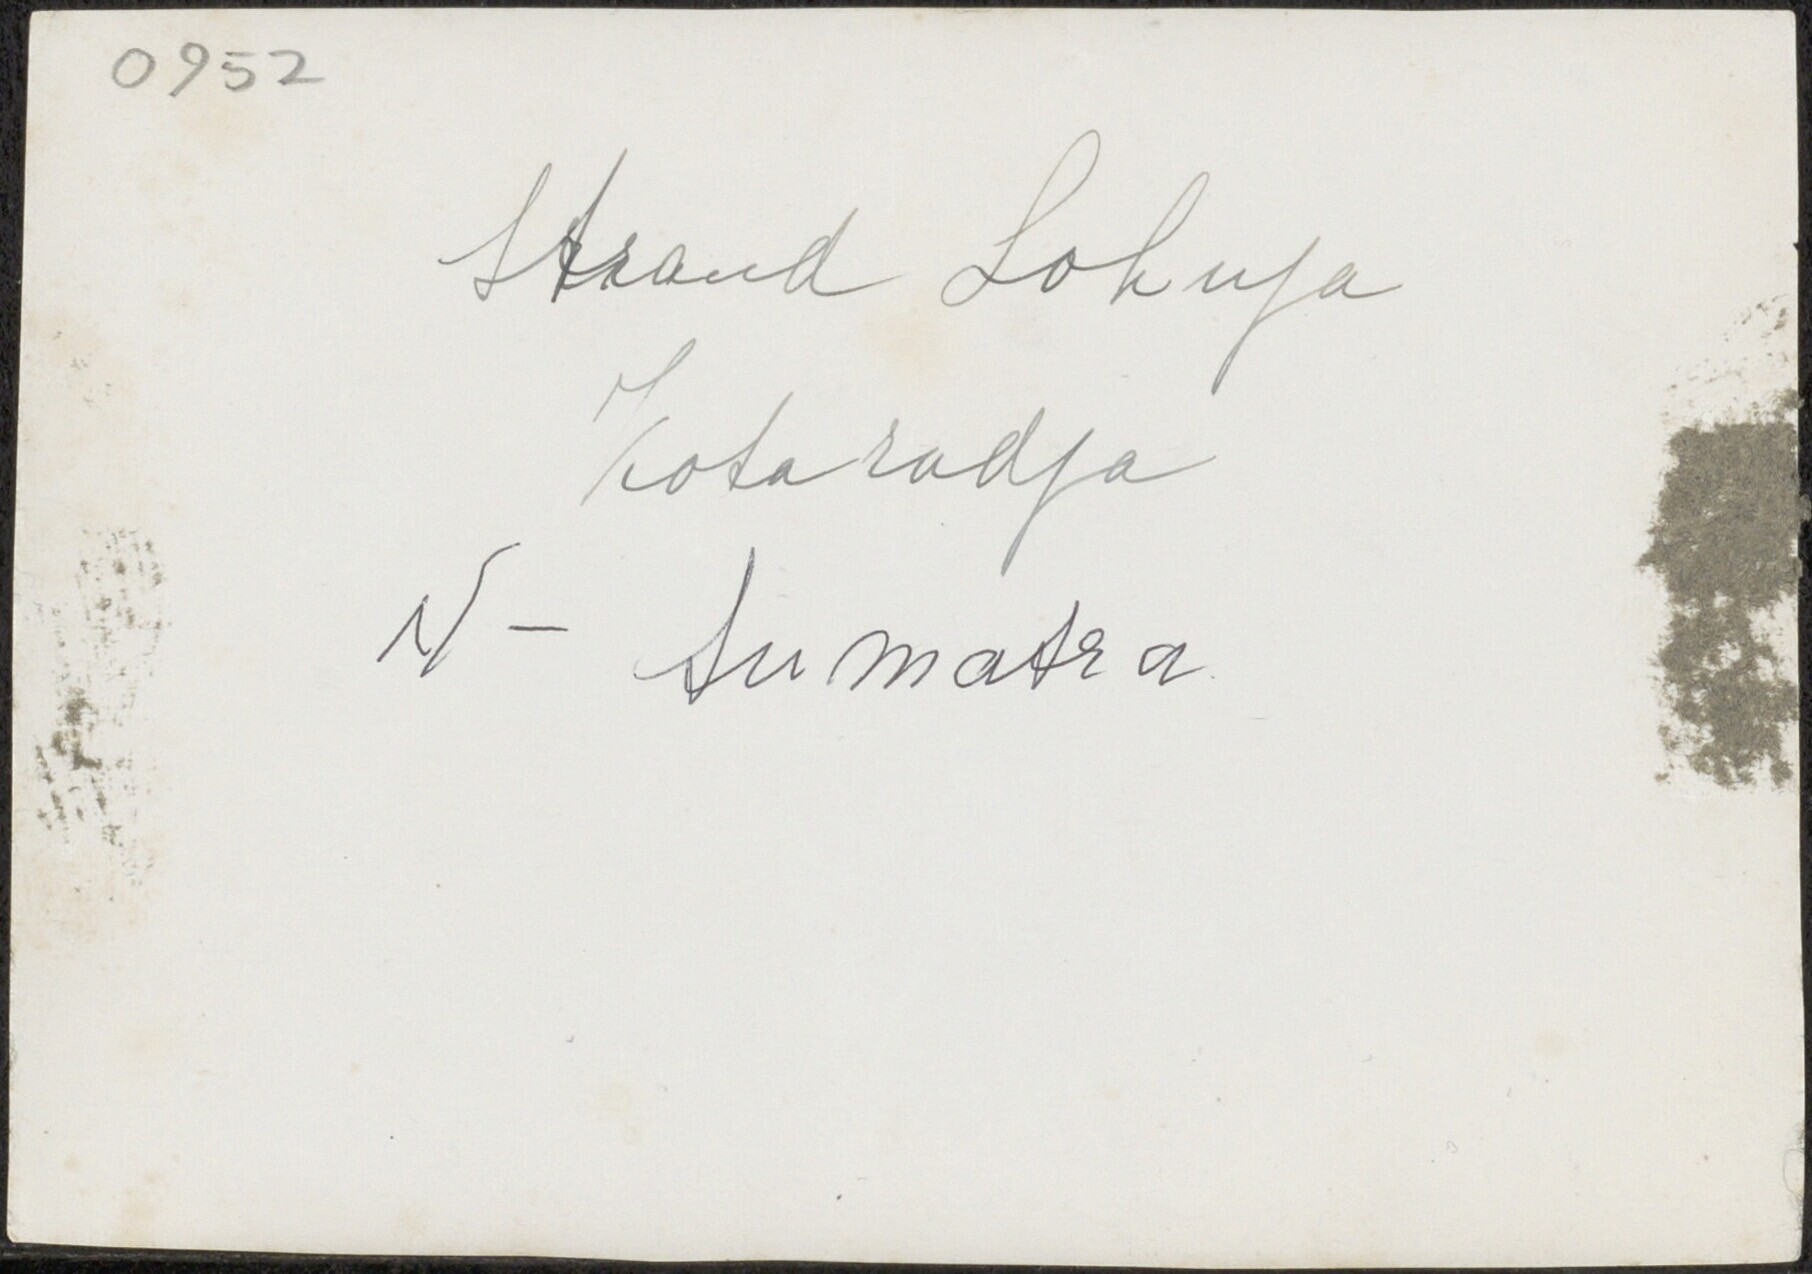 0952
Strand Lohnja
Kotaradja
N - Sumatra